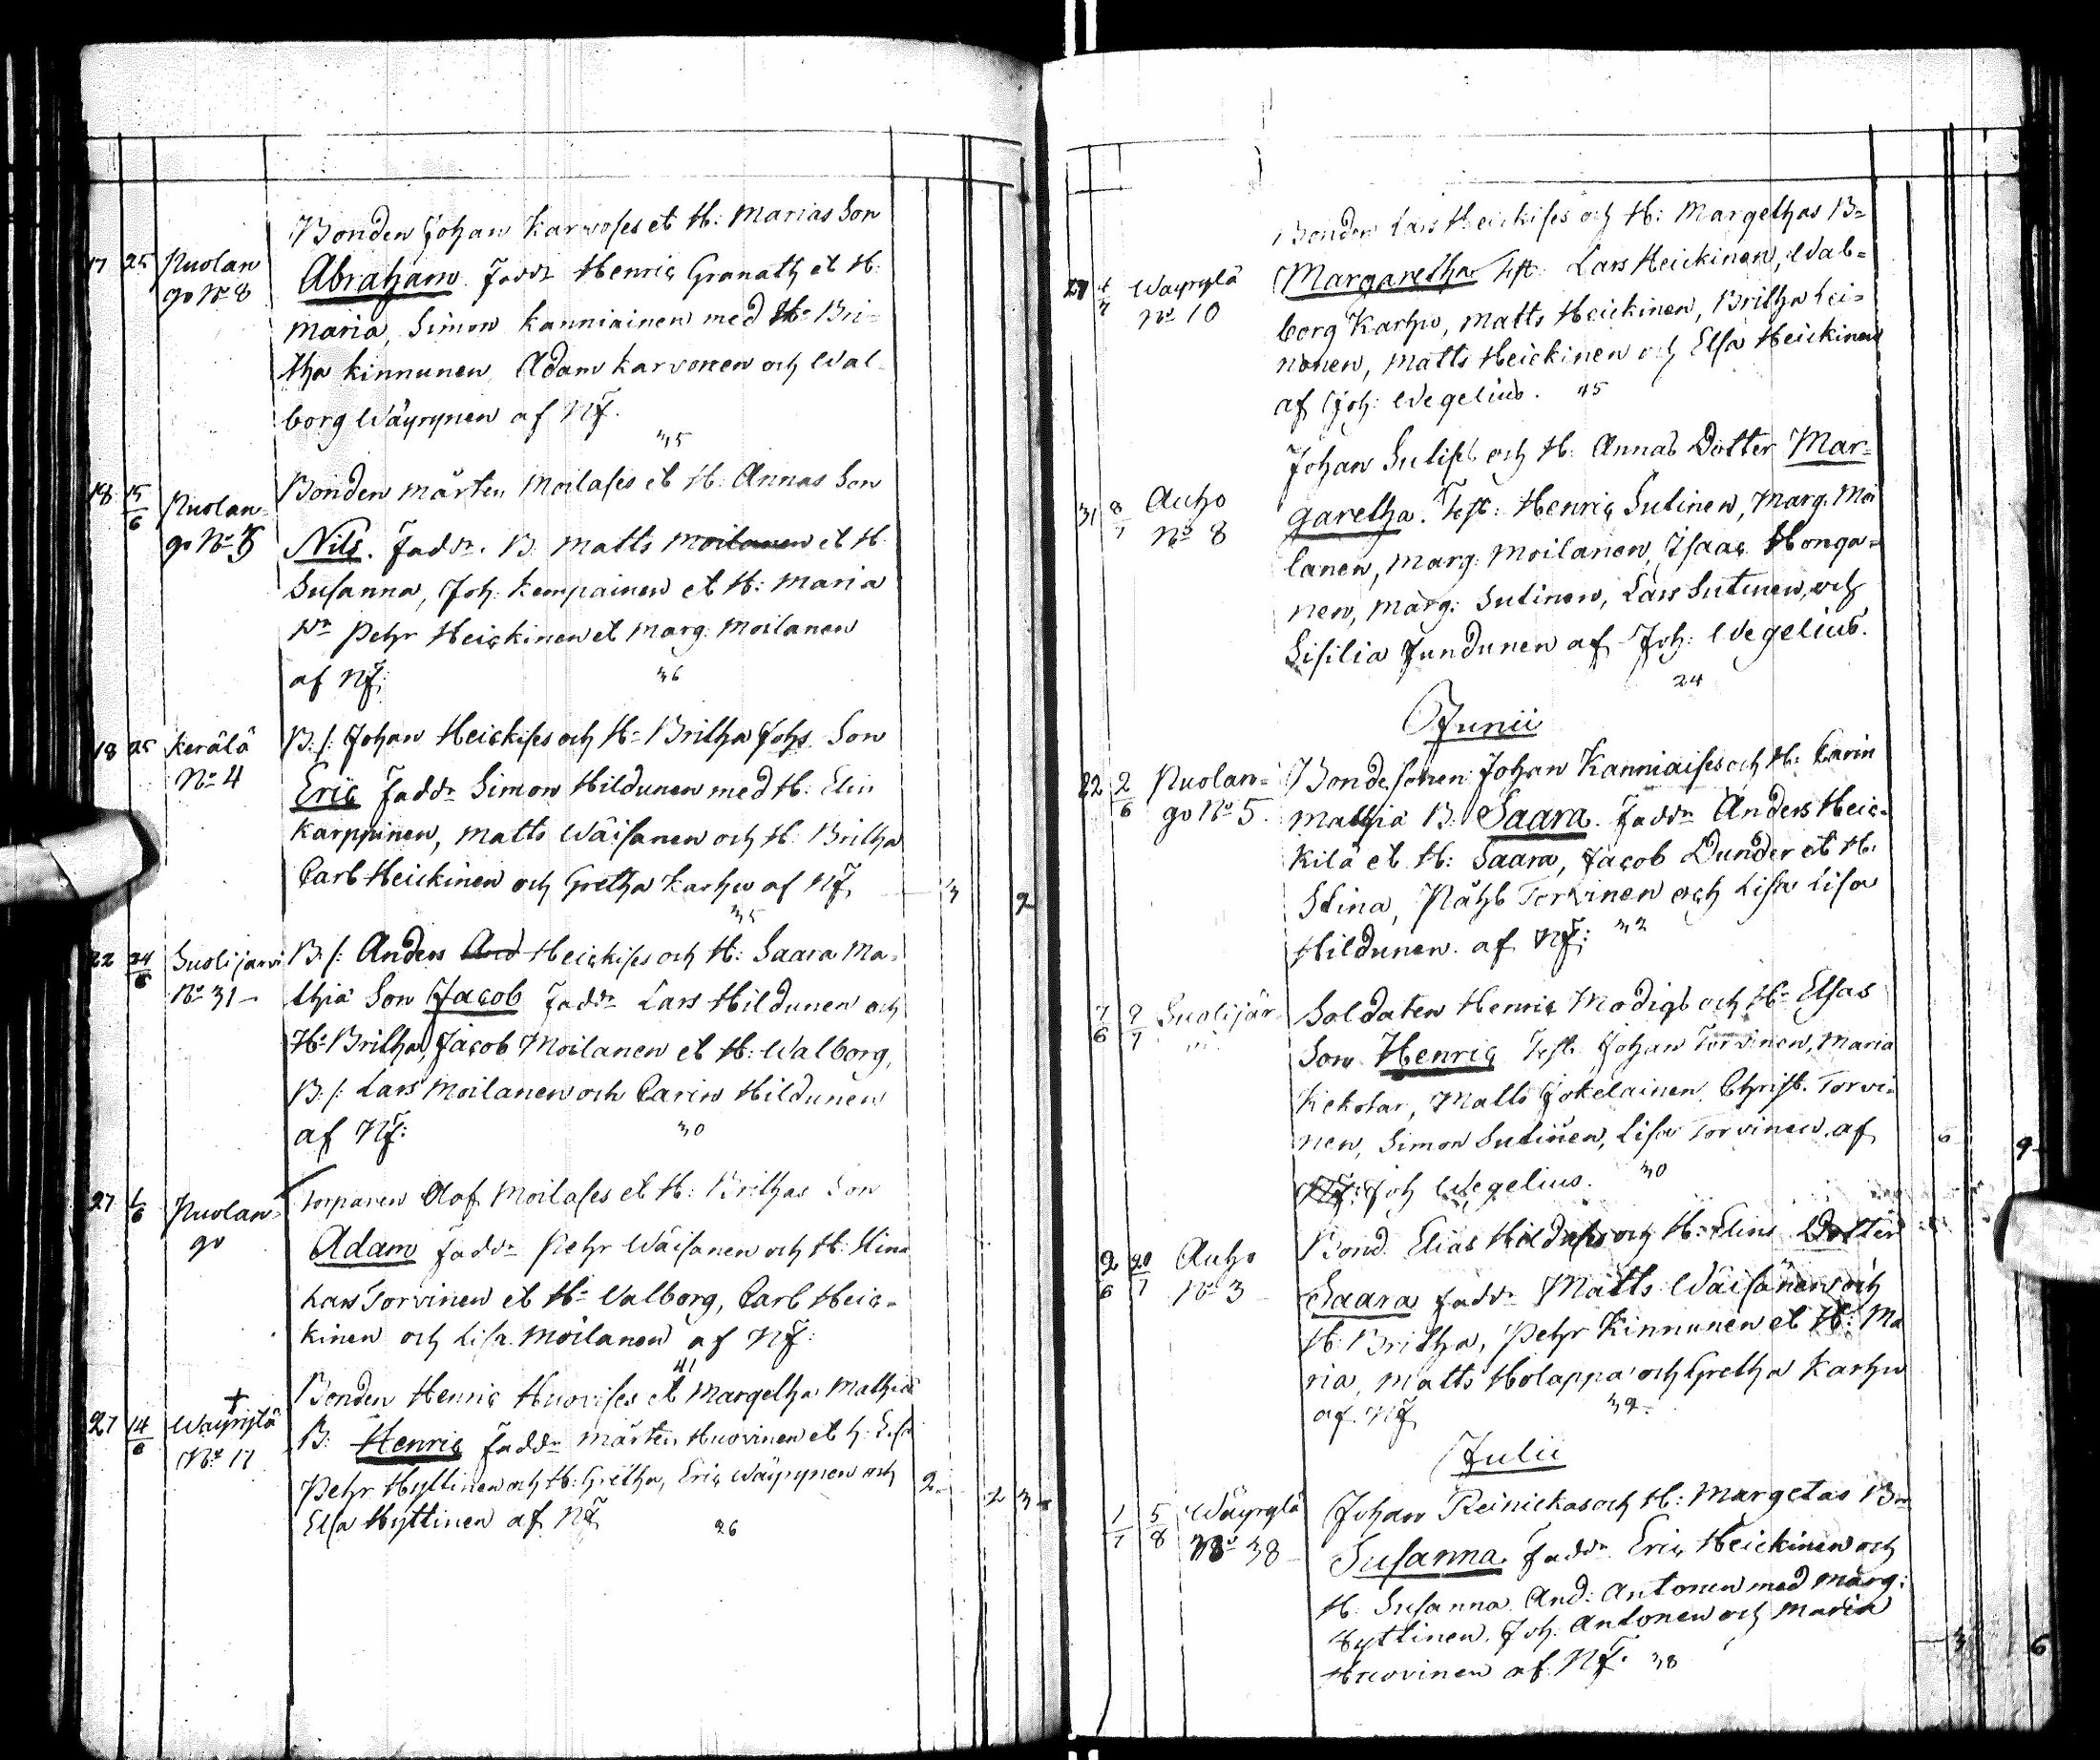 Bonden Johan Karvoses et H: Marias Son
17 25 Puolan
go No 8
Abraham. Faddr Henric Granath et H:
Maria, Simon Kanniainen med H: Bri-
tha Kinnunen, Adam Karvonen och Wal-
borg Wäyrynen af NF.
35
Bonden Mårten Moilases et H: Annas Son
18 15/6 Puolan-
go No
Nils. Faddr. B. Matts Moilanen et H:
Susanna, Joh: Kempainen et H: Maria
Pehr Heickinen et Marg: Moilanen
af NF:
36
B:/: Johan Heickises och H: Britha Johs Son
18 25 Kerälä
No 4
Eric Faddr Simon Hildunen med H: Elin
Karppinen, Matts Wäisänen och H: Britha
Carl Heickinen och Gretha Karhu af NF 3 2
35
B:/: Anders And Heickises och H: Saara Ma-
22 24/6 Suolijärvi
No 31
thiä Son Jacob Faddr Lars Hildunen och
H: Britha, Jacob Moilanen et H: Walborg,
B:/: Lars Moilanen och Carin Hildunen
af NF:
30
Torparen Olof Moilases et H: Brithas Son
27 1/6 Puolan-
go
Adam Faddr Pehr Wäisänen och H: Stina
Lars Torvinen et H: Walborg, Carl Heic-
kinen och Lisa Moilanen af NF:
41
Bonden Henric Huovises et Margetha Mathiä
27 14/6 + Wäyrylä
No 17
B: Henric Faddr Mårten Huovinen et H: Lisa
Pehr Hyttinen och H: Gretha, Eric Wäyrynen och 2 2 3
Elsa Hyttinen af NF
26
Bonden Lars Heickises och H: Margethas B-
Wäyrylä
No 10
Margaretha Test: Lars Heickinen, Wal-
borg Karhu, Matts Heickinen, Britha Lei-
nonen, Matts Heickinen och Elsa Heickinen
af Joh: Wegelius. 45
Johan Sutises och H: Annas Dotter Mar-
31 8/7 Auho
No 8
garetha. Test: Henric Sutinen, Marg. Moi
lanen, Marg: Moilanen, Isaac Honga-
nen, Marg: Sutinen, Lars Sutinen, och
Sisilia Jundunen af Joh: Wegelius.
24
Junii
Bondesonen Johan Kanniaises och H: Carin
22 2/6 Puolan-
go No 5.
Mathiä B: Saara. Faddr Anders Heic-
kilä et H: Saara, Jacob Dunder et H:
Stina, Påhl Torvinen och Lisa Lisa
Hildunen. af NF:
Soldaten Henric Modigs och H: Elsas
7/6 9/7 Suolijär-
vi
Son Henric Test: Johan Torvinen, Maria
Kekolar, Matts Jokelainen, Christ. Torvi-
nen, Simon Sutinen, Lisa Torvinen af 6 9
Joh Wegelius. 30
Bond. Elias Hilduses och H: Elins Dotter
9/6 20/7 Auho
No 3
Saara Faddr Matts Wäisänen och
H: Britha, Pehr Kinnunen et H: Ma
ria, Matts Holappa och Gretha Karhu
af NF
Julii
Johan Reinickas och H: Margetas B-
1/7 5/8 Wäyrylä
No 38
Susanna. Faddr Eric Heickinen och
H: Susanna And: Antonen med Marg:
Hyttinen. Joh: Antonen och Maria
Huovinen af NF. 38 3 6